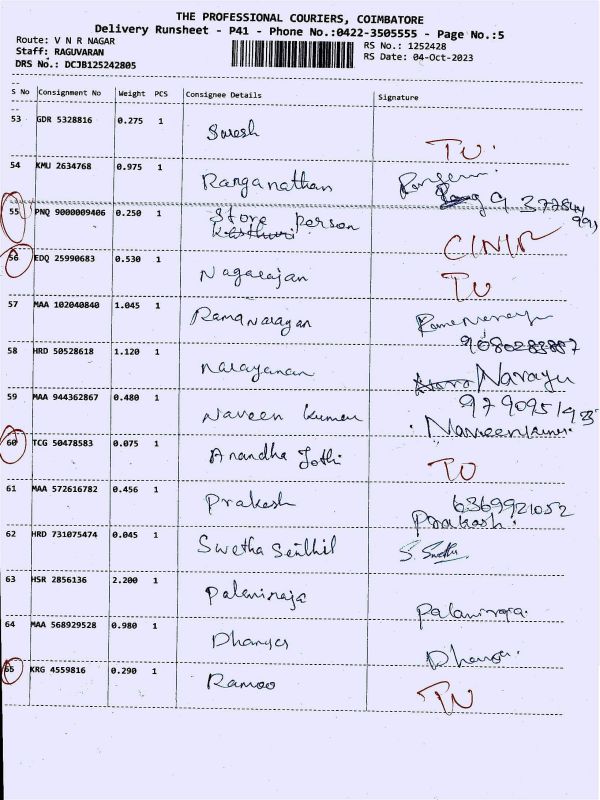 THE PROFESSIONAL COURIERS, COIMBATORE
Delivery Runsheet - P41 - Phone No.:0422-3505555 - Page No.:5
Route: V N R NAGAR
Staff: RAGUVARAN
DRS No.: DCJB125242805
RS No.: 1252428
RS Date: 04-Oct-2023
S No Consignment No Weight PCS Consignee Details Signature
53 GDR 5328816 0.275 1 Suresh TU
54 KMU 2634768 0.975 1 Ranganathan
55 PNQ 9000009406 0.250 1 Store person
C/N/R
56 EDQ 25990683 0.530 1 Nagarajan TU
57 MAA 102040840 1.045 1 Ramanarayan
9080283887
58 HRD 50528618 1.120 1 Narayanan Narayu
59 MAA 944362867 0.480 1 Naveen kumar Naveenkumar
60 TCG 50478583 0.075 1 Anandha Jothi TU
61 MAA 572616782 0.456 1 Prakesh 6369921052
Prakash.
62 HRD 731075474 0.045 1 Swetha Senthil S. Swetha
63 HSR 2856136 2.200 1 Palaniraja Palaniraja.
64 MAA 568929528 0.980 1 Dhanya
65 KRG 4559816 0.290 1 Ramoo TU